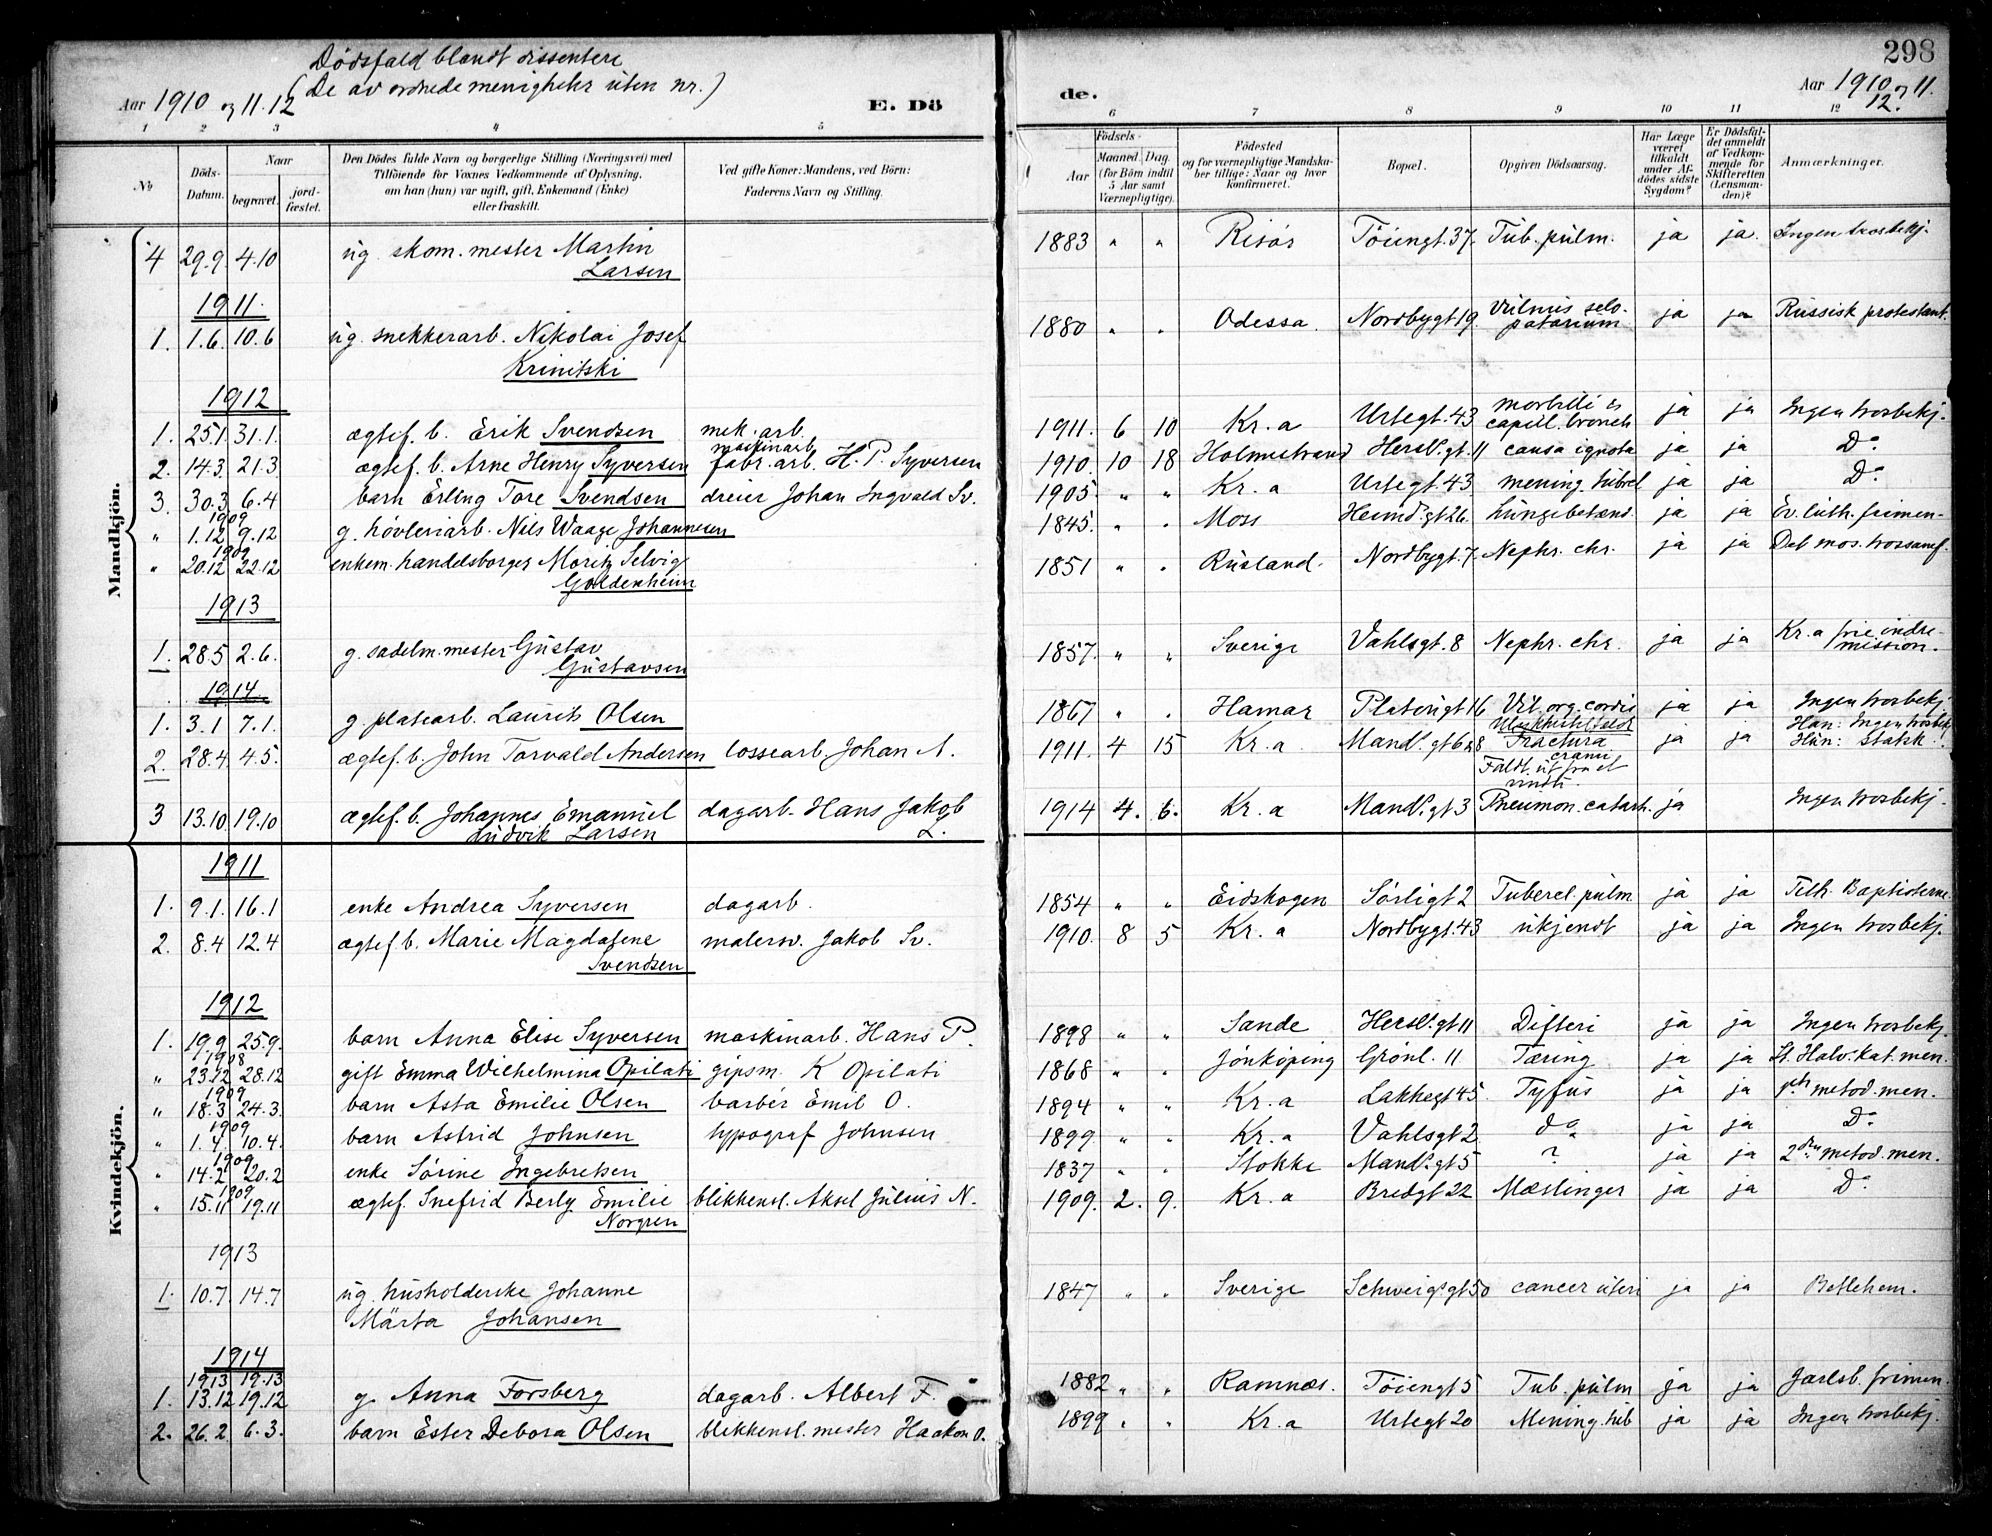 298
Dödsfald blandt dissentere
(De av ordnede menigheter uten nr.)
Aar 1910 og 11. 12
E. Dö
de.
Aar 1910 og 11. 12.
1 2 3 4 5 6 7 8 9 10 11 12
No
Döds-Datum.
Naar
begravet.
jord-fæstet.
Den Dödes fulde Navn og borgerlige Stilling (Næringsvei) med Tilföiende for Voxnes Vedkommende af Oplysning, om han (hun) var ugift, gift, Enkemand (Enke) eller fraskilt.
Ved gifte Koner: Mandens, ved Börn: Faderens Navn og Stilling.
Födsels-
Aar
Maaned. Dag.
(for Börn indtil 5 Aar samt Værnepligtige).
Födested og for værnepligtige Mandskaber tillige: Naar og hvor konfirmeret.
Bopæl.
Opgiven Dödsaarsag.
Har Læge været tilkaldt under Afdödes sidste Sygdom?
Er Dödsfaldet anmeldt af Vedkommende for Skifteretten (Lensmanden)?
Anmærkninger.
Mandkjön.
4 29.9. 4.10 ug. skom. mester Martin Larsen 1883 " " Risör Töiengt. 37. Tub. pulm. ja ja. Ingen trosbekj.
1911.
1. 1.6. 10.6 ug. snekkerarb. Nikolai Josef Krinitski 1880 " " Odessa. Nordbygt 19. ja ja Russisk protestant.
1912
1. 25.1. 31.1. ægtef. b. Erik Svendsen mek. arb. 1911. 6 10 Kr.a Urtegt. 43 morbilli & capill. bronch ja ja Ingen trosbekj.
2. 14.3. 21.3 ægtef. b. Arne Henry Syversen maskinarb. fabr. arb. H. P. Syversen 1910. 10 18 Holmestrand Hersl. gt. 11 causa ignota ja ja Do
3. 30.3 6.4 barn Erling Tore Svendsen dreier Johan Ingvald Sv. 1905. " " Kr.a Urtegt. 43 mening. tubrcl ja ja Do
" 1909 1.12 9.12 g. hövleriarb. Nils Waage Johannesen 1845. " " Moss Heimd. gt 26. Lungebetænd. ja ja Ev. luth. frimen-
" 1909 20.12 22.12 enkem. handelsborger Moritz Selvig Goldenheim 1851 " " Rusland. Nordbygt. 7. Nephr. chr. ja ja Det mos. trossamf.
1913
1. 28.5 2.6. g. sadelm. mester Gustav Gustavsen 1857. " " Sverige Vahlsgt. 8 Nephr. chr. ja ja Kr.a frie indre-mission.
1914.
1. 3.1 7.1. g. platearb. Laurits Olsen 1867 " " Hamar Platougt 16 Vit. org. cordis ja ja Ingen trosbekj
2. 28.4. 4.5. ægtef. b. John Torvald Andersen lossearb. Johan A. 1911. 4 15 Kr.a Mandl. gt 6&8 Ulykkestilfælde Fractura cranii Faldt ut fra et vindu. ja ja Han: Ingen trosbek. Hun: Statsk.!
3 13.10 19.10 ægtef. b. Johannes Emanuel Ludvik Larsen dagarb. Hans Jakob L. 1914 4. 6. Kr.a Mandl. gt 3 Pneumon. catarh. ja Ingen trosbekj.
Kvindekjön.
1911
1. 9.1. 16.1 enke Andrea Syversen dagarb. 1854 " " Eidskogen Sörligt 2 Tubercl. pulm ja ja Tilh. Baptisterne.
2. 8.4 12.4 ægtef. b. Marie Magdalene Svendsen malersv. Jakob Sv. 1910. 8 5 Kr.a Nordbygt. 43 ukjendt ja ja Ingen trosbekj.
1912
1. 19.9 25.9. barn Anna Elise Syversen maskinarb. Hans P. 1898 " " Sande Hersl. gt 11 Difteri ja ja Ingen trosbekj.
" 1908 23.12 28.12 gift Emma Wilhelmina Opilati gipsm. K Opilati 1868 " " Jönköping Grönl. 11 Tæring ja ja St. Halv. kat. men.
" 1909 18.3 24.3. barn Asta Emilie Olsen barbér Emil O. 1894 " " Kr.a Lakkegt 45. Tyfus ja ja 1ste metod. men.
" 1909 1.4. 10.4. barn Astrid Johnsen typograf Johnsen 1899 " " Kr.a Vahlsgt 2 do ja ja Do
" 1909 14.2 20.2 enke Sörine Ingebretsen 1837 " " Stokke Mandl. gt 5 ? ja ja 2den metod. men.
" 1909 15.11 19.11 ægtef. Snefrid Berly Emilie Norgren blikkensl. Aksel Julius N. 1909. 2. 9. Kr.a Bredgt 22 Mæslinger ja ja Do
1913
1. 10.7. 14.7 ug. husholderske Johanne Märta Johansen 1847 " " Sverige Schweigs gt 50 cancer uteri ja ja Betlehem.
1914
1. 1913 13.12 19.13 19.12 g. Anna Forsberg dagarb. Albert F. 1882 " " Ramnæs. Töiengt 5 Tub. pulm ja ja Jarlsb. frimen.
2. 26.2. 6.3. barn Ester Debora Olsen blikkensl. mester Haakon O. 1899 " " Kr.a Urtegt 20 Mening. tub ja ja Ingen trosbekj.